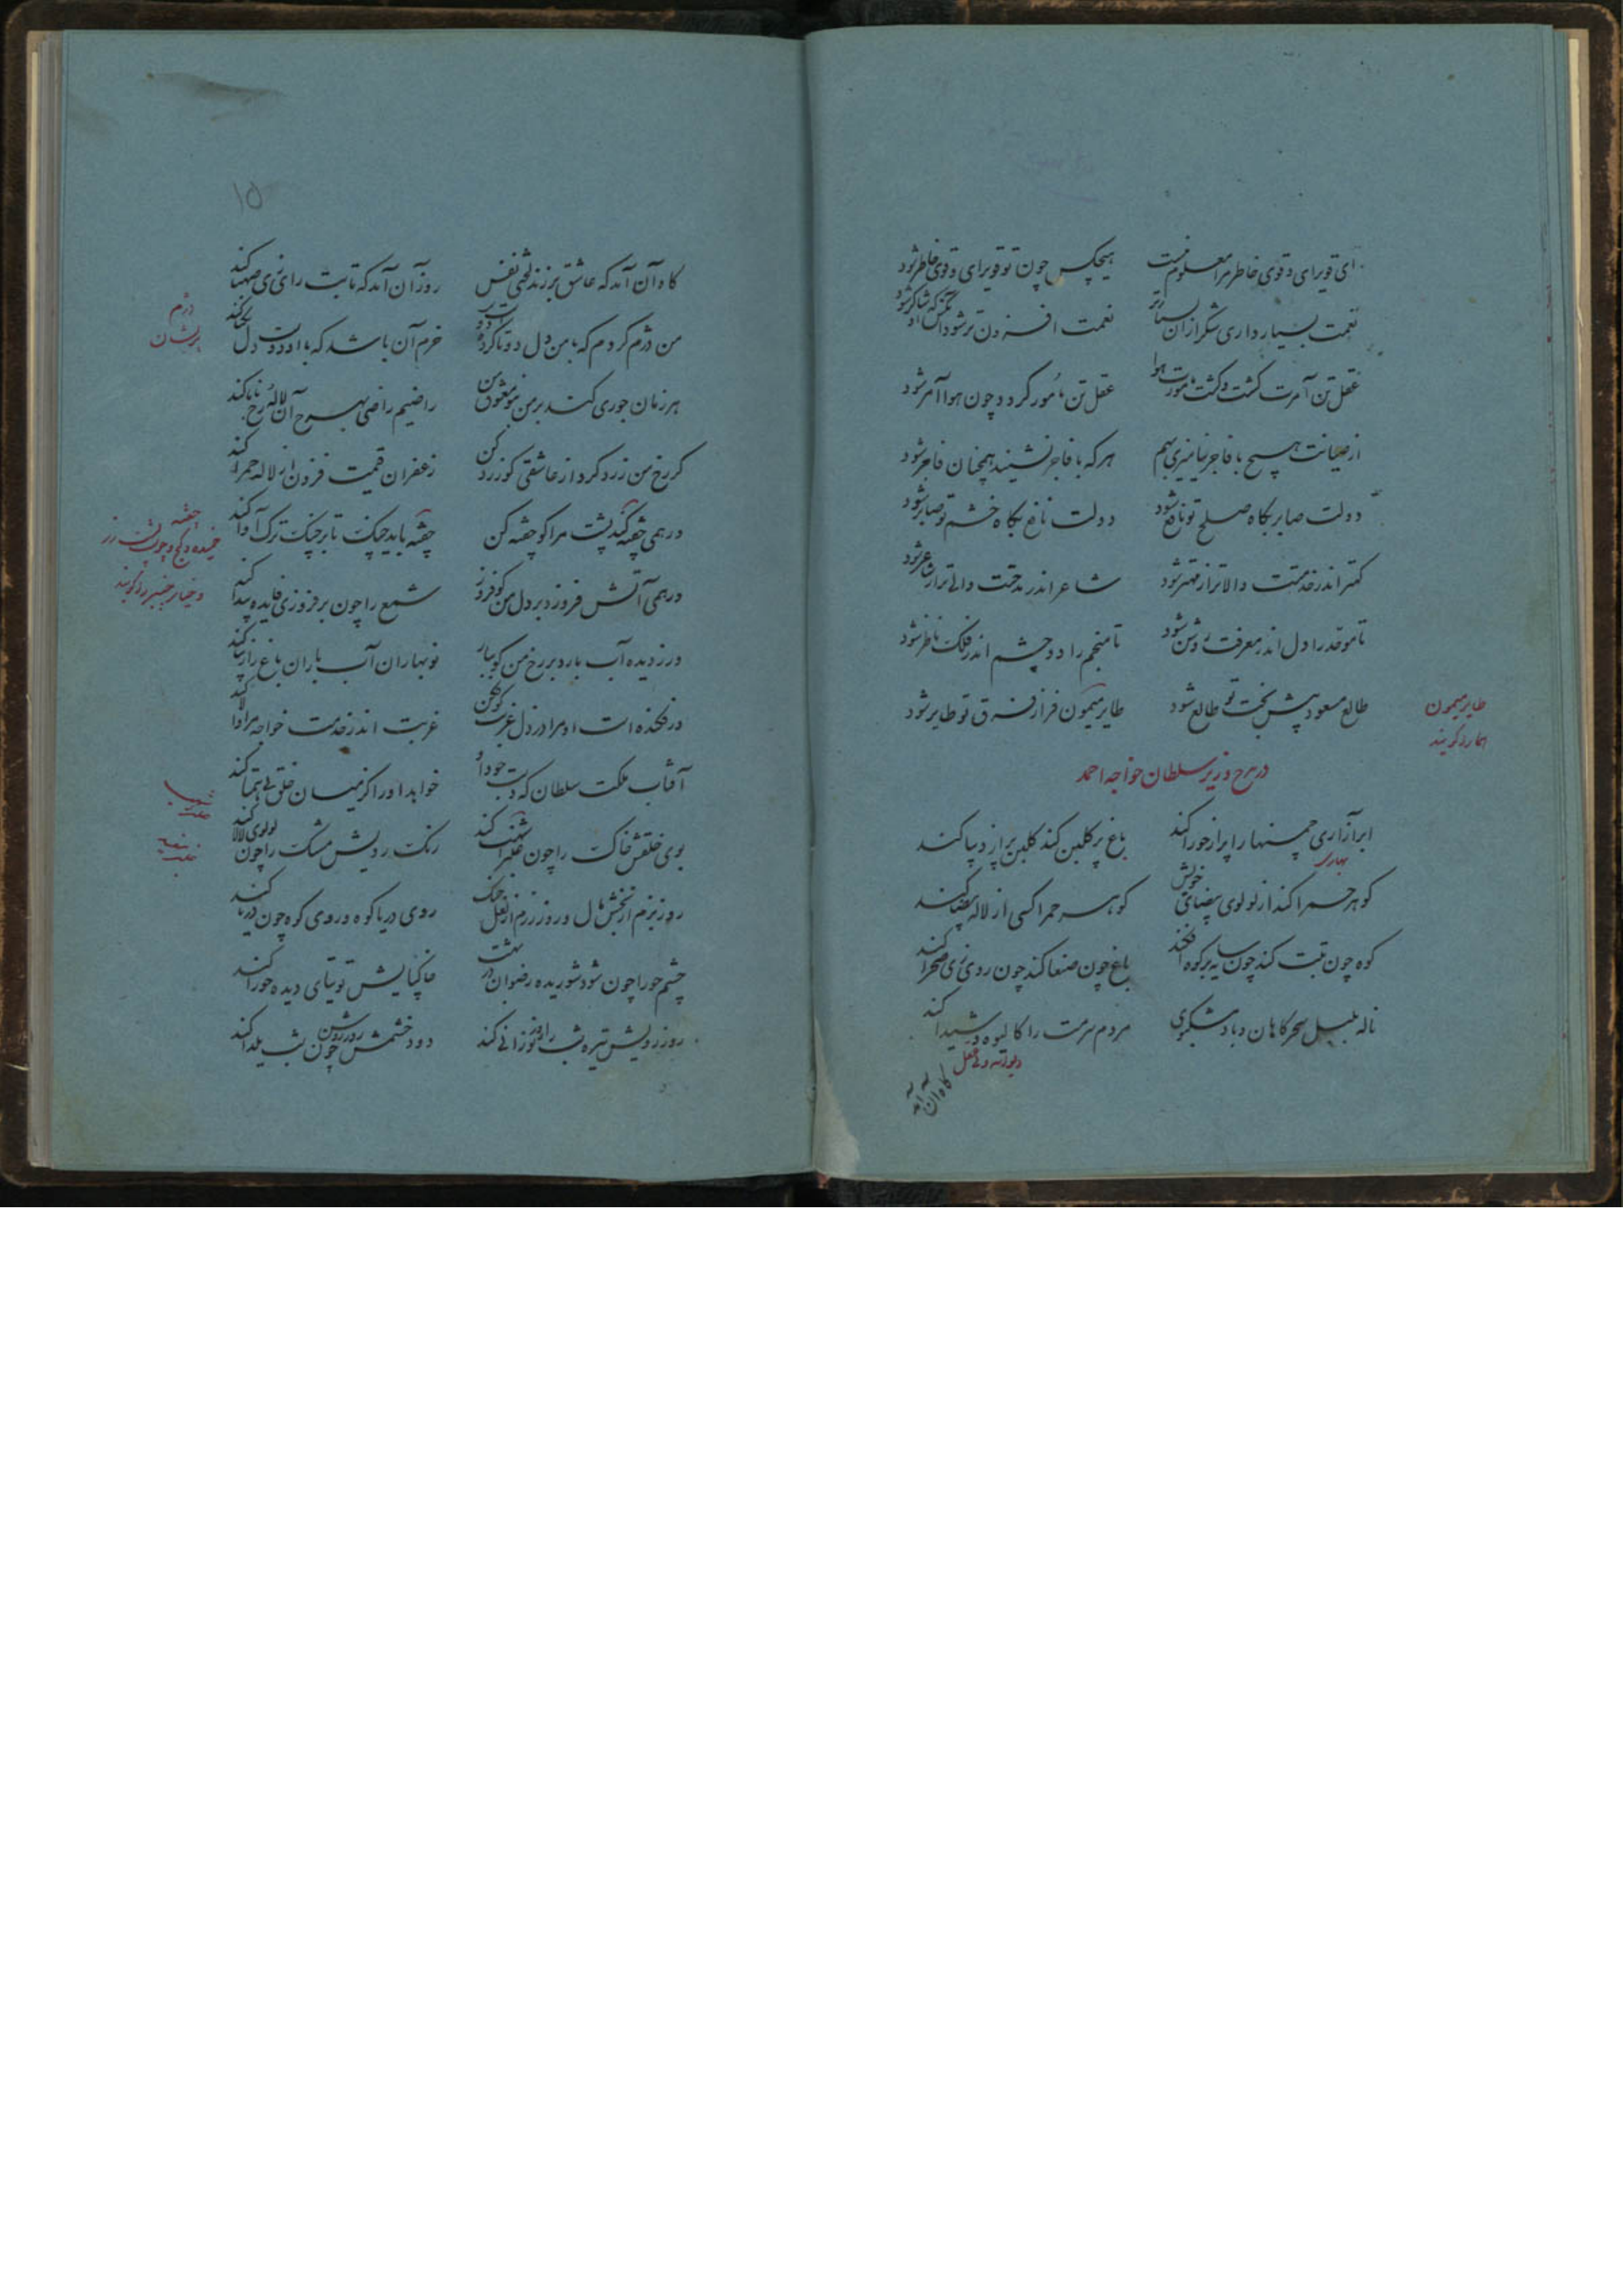 ای قوی رای و قوی خاطر مرا معلوم نیست
هیچکس چون تو قوی رای و قوی خاطر شود
نعمت بسیار داری شکر از آن بسیارتر
نعمت افزون تر شود آنکس که او شاکر شود
عقل تن آمرت گشت و گشت مأمورت هوا
عقل تن مأمور گردد چون هوا آمر شود
از صیانت هیچ با فاجر نیامیزی بهم
هر که با فاجر نشیند همچنان فاجر شود
دولت صابر بگاه صلح تو نافع شود
دولت نافع بگاه خشم تو صابر شود
کمتر اندر خدمتت والاتر از مهتر شود
شاعر اندر مدحتت والی تر از شاعر شود
تا موفق را دل اندر معرفت روشن شود
تا منجم را دو چشم اندر فلک ناظر شود
طالع مسعود پیش بخت تو طالع شود
طایر میمون فراز فرق تو طایر شود
طایر میمون
هما را گویند
در مدح وزیر سلطان خواجه احمد
ابر آزاری چمنها را پر از حورا کند
باغ پر گلبن کند گلبن پر از دیبا کند
بهاری
گوهر حمرا کند از لولوی بیضای خویش
گوهر حمرا کسی از لولو بیضا کند
کوه چون تبت کند چون سایه بر کوه افکند
باغ چون صنعا کند چون روی زی صحرا کند
ناله بلبل سحرگاهان و باد مشکبوی
مردم سرمست را کالیوه و شیدا کند
دیوانه و بی عقل
گاه آن آمد
۱۵
گاه آن آمد که عاشق برزند لختی نفس
روز آن آمد که تایب رای زی صهبا کند
من دژم گردم که با من دل دوتا کرده است دوست
خرم آن باشد که با او دوست دل یکتا کند
دژم
پریشان
هر زمان جوری کند بر من بنو معشوق من
راضیم راضی بهرچ آن لاله رخ با ما کند
گر رخ من زرد کرد از عاشقی گو زرد کن
زعفران قیمت فزون از لاله حمرا کند
درهمی چفته کند پشت مرا گو چفته کن
چفته باید چنگ تا بر چنگ ترک آوا کند
چفته
خمیده و کج و چوب
درهمی آتش فروزد بر دل من گو فروز
شمع را چون برفروزی فایده پیدا کند
ور ز دیده آب بارد بر رخ من گو ببار
نوبهاران آب باران باغ را زیبا کند
ور فکنده است او مرا در ذل غربت گو فکن
غربت اندر خدمت خواجه مرا والا کند
آفتاب ملکت سلطان که دست جود او
خواهد او را کز میان خلق بی همتا کند
بوی خلقش خاک را چون عنبر اشهب کند
رنگ رویش مشک را چون لولوی لالا کند
روز بزم از بخش مال و روز رزم از نعل خنگ
روی دریا کوه و روی کوه چون دریا کند
چشم حورا چون شود شوریده رضوان در بهشت
خاک پایش توتیای دیده حورا کند
روز رویش تیره شب را روز نورانی کند
دود خشمش روز روشن چون شب یلدا کند